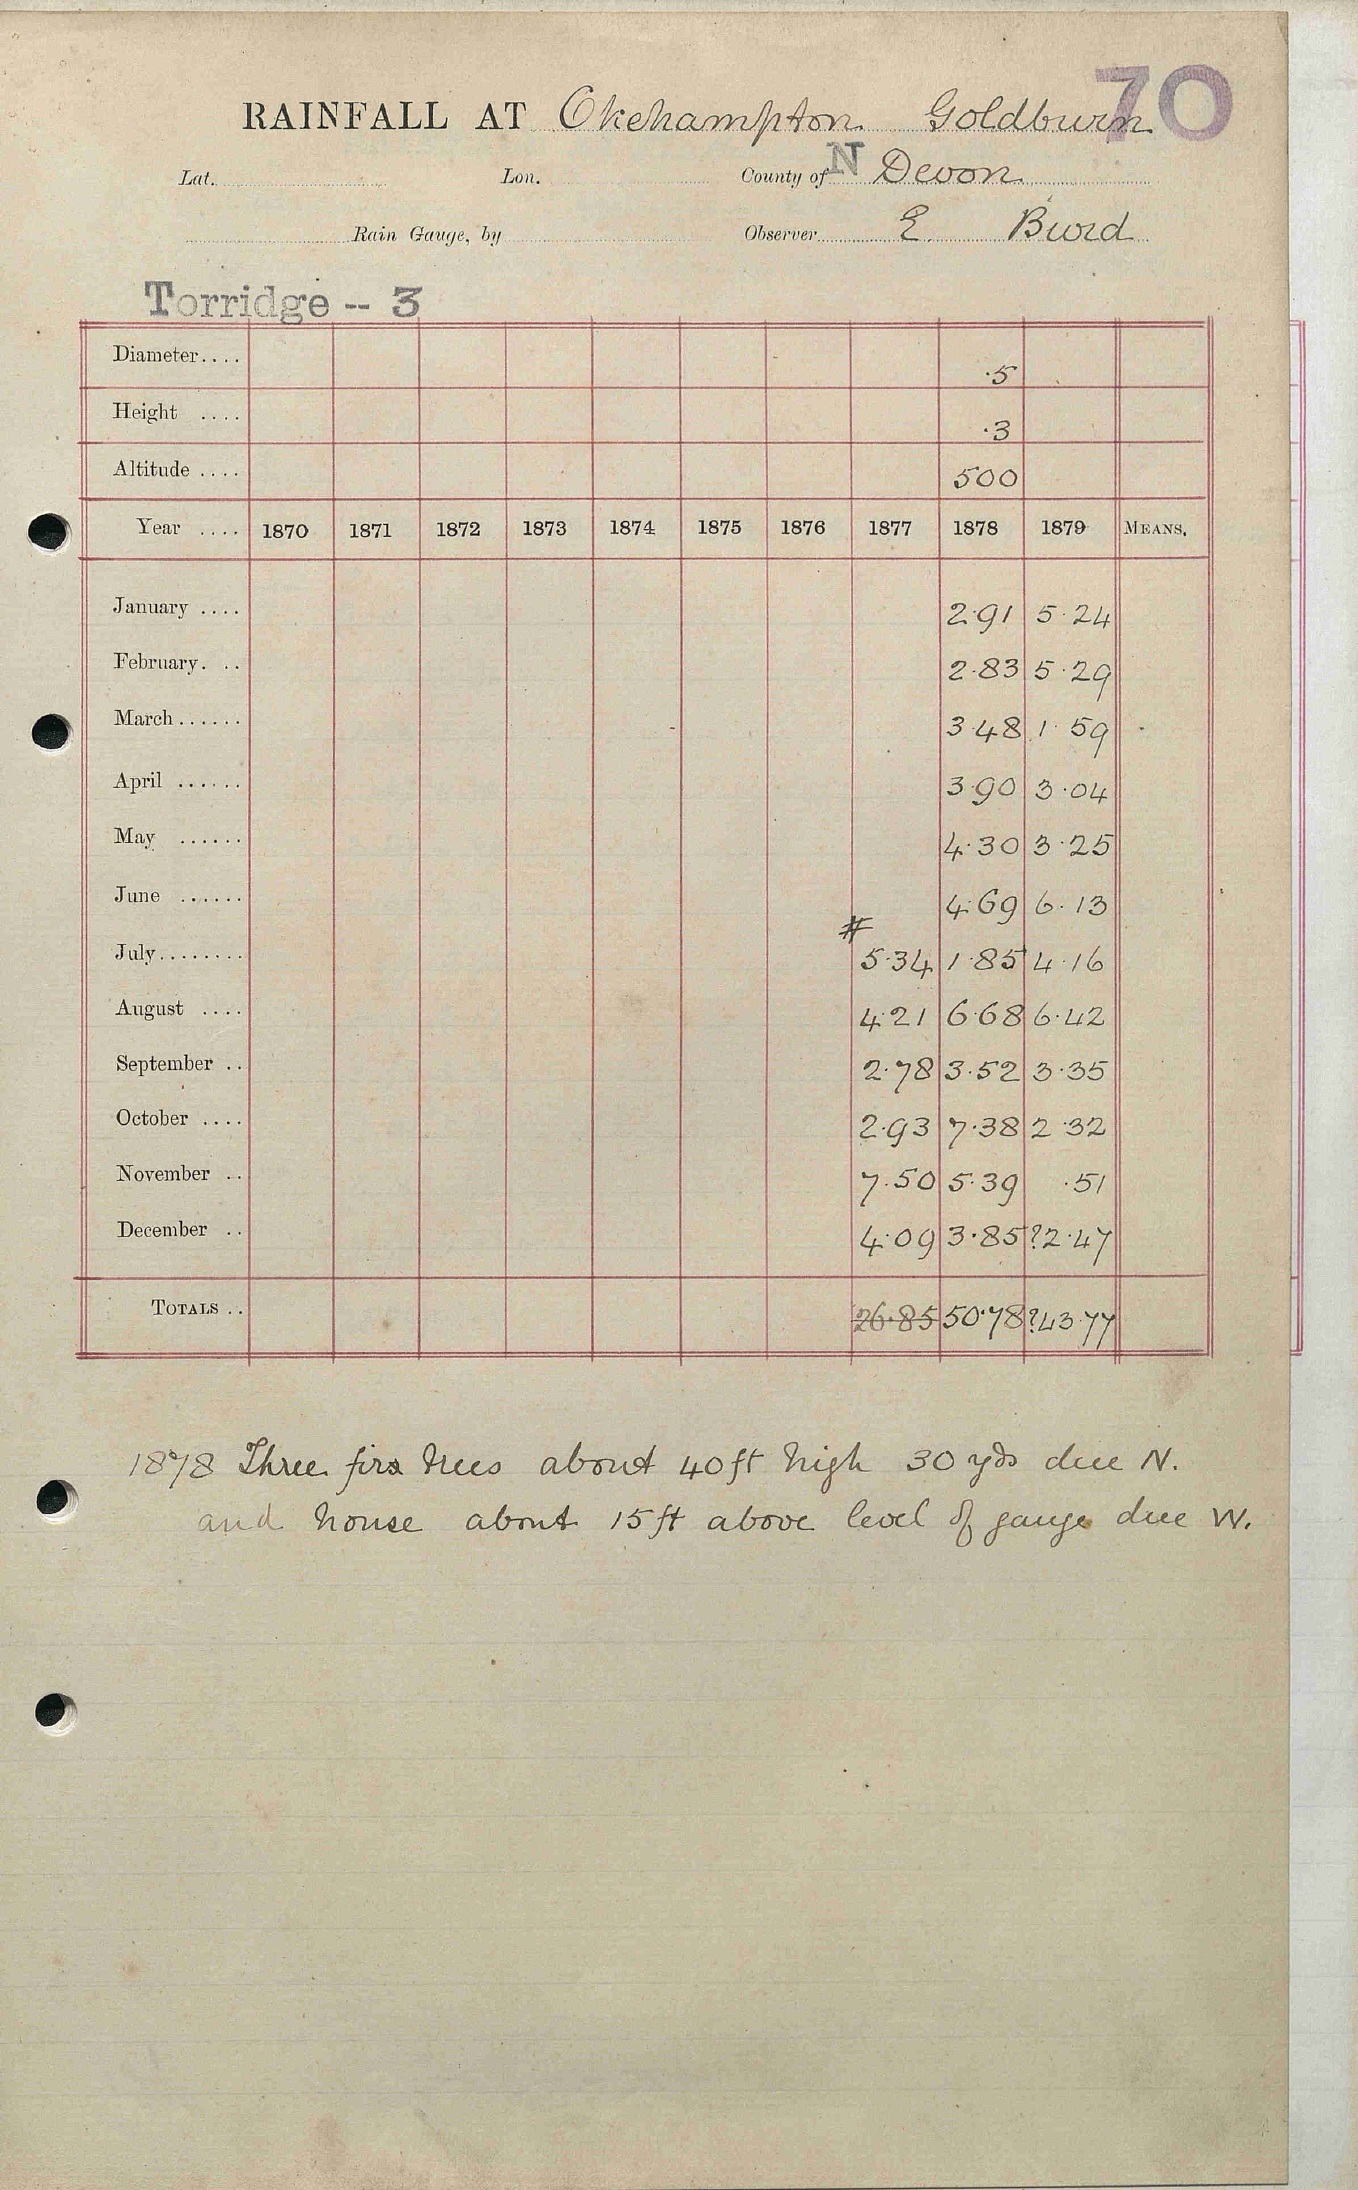 70
RAINFALL AT Okehampton Goldburn
Lat. Lon. County of N Devon
Rain Gauge, by Observer E Burd
Torridge -- 3
Diameter.... ·5
Height .... ·3
Altitude .... 500
Year .... 1870 1871 1872 1873 1874 1875 1876 1877 1878 1879 MEANS.
January .... 2·91 5·24
February. .. 2·83 5·29
March...... 3·48 1·59
April ...... 3·90 3·04
May ...... 4·30 3·25
June ...... 4·69 6·13
#
July........ 5·34 1·85 4·16
August .... 4·21 6·68 6·42
September .. 2·78 3·52 3·35
October .... 2·93 7·38 2·32
November .. 7·50 5·39 ·51
December .. 4·09 3·85 ?2·47
TOTALS .. 26·85 50·78 ?43·77
1878 Three firs trees about 40ft high 30 yds due N.
and house about 15ft above level of gauge due W.